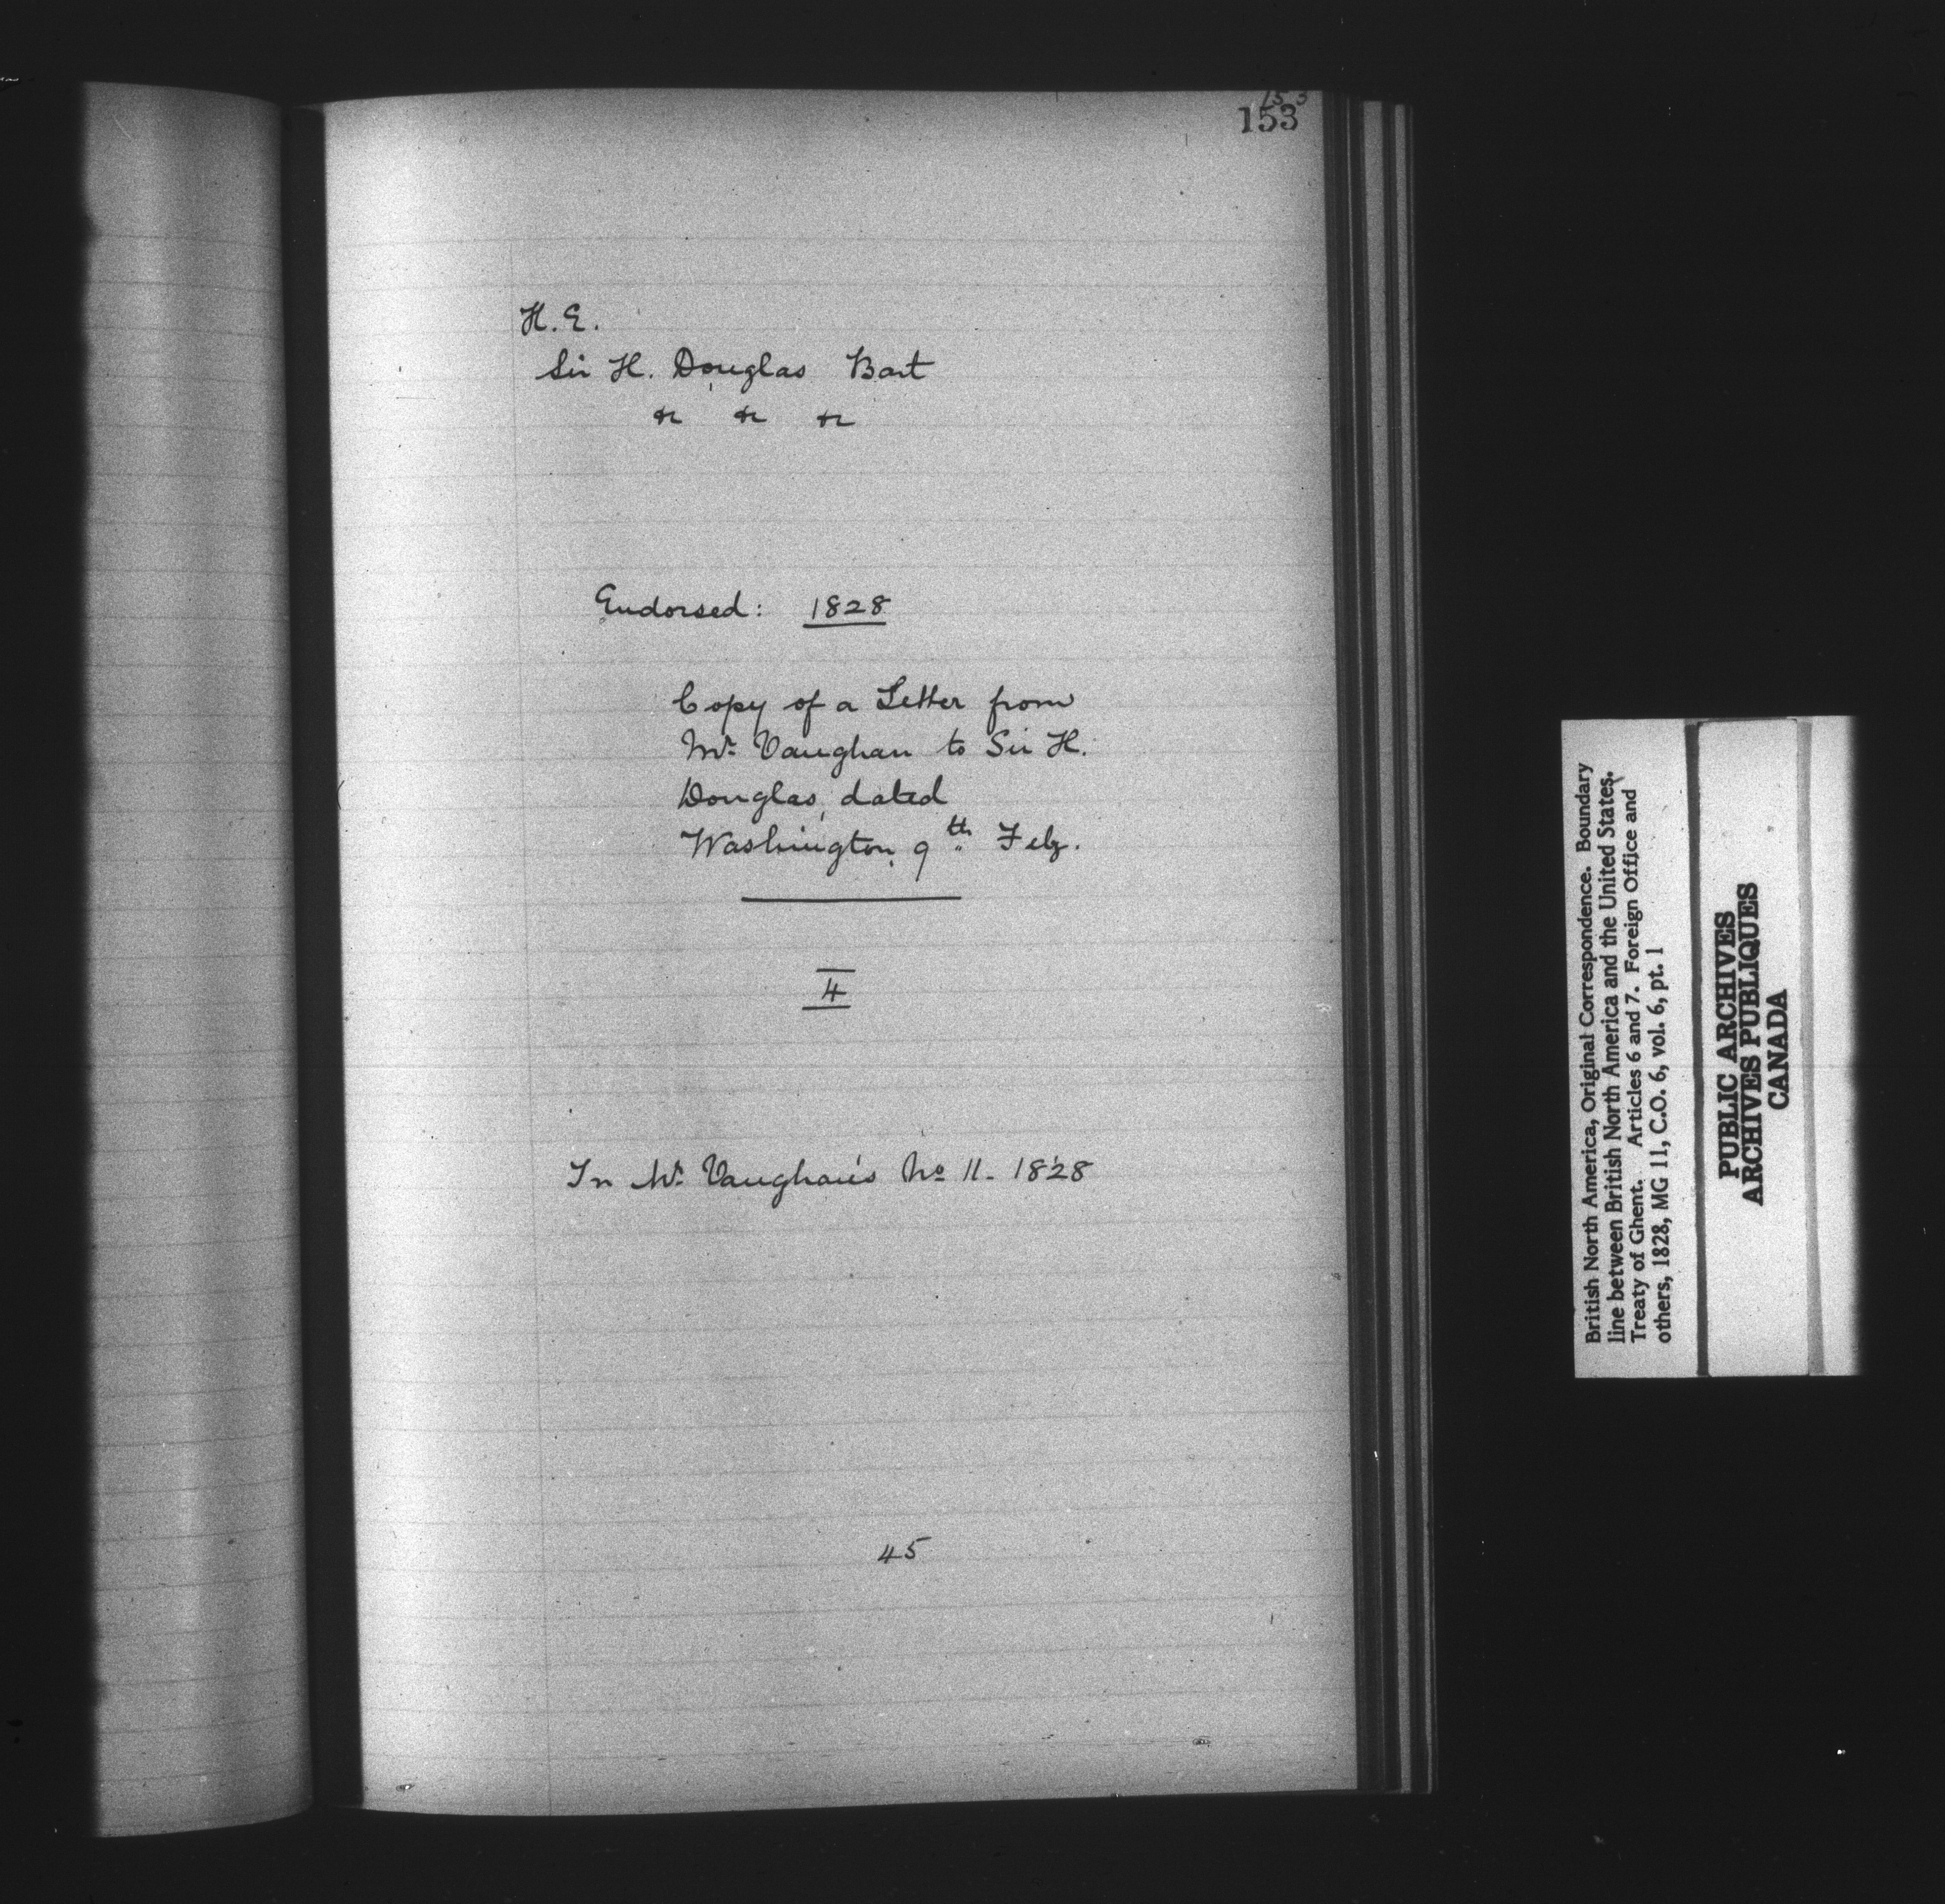 153
153
H. E.
Sir H. Douglas Bart
&c &c &c
Endorsed: 1828
Copy of a Letter from
Mr. Vaughan to Sir H.
Douglas, dated
Washington, 9th Feby.
4
In Mr. Vaughan's No 11. 1828
45
British North America, Original Correspondence. Boundary
line between British North America and the United States.
Treaty of Ghent. Articles 6 and 7. Foreign Office and
others, 1828, MG 11, C.O. 6, vol. 6, pt. 1
PUBLIC ARCHIVES
ARCHIVES PUBLIQUES
CANADA